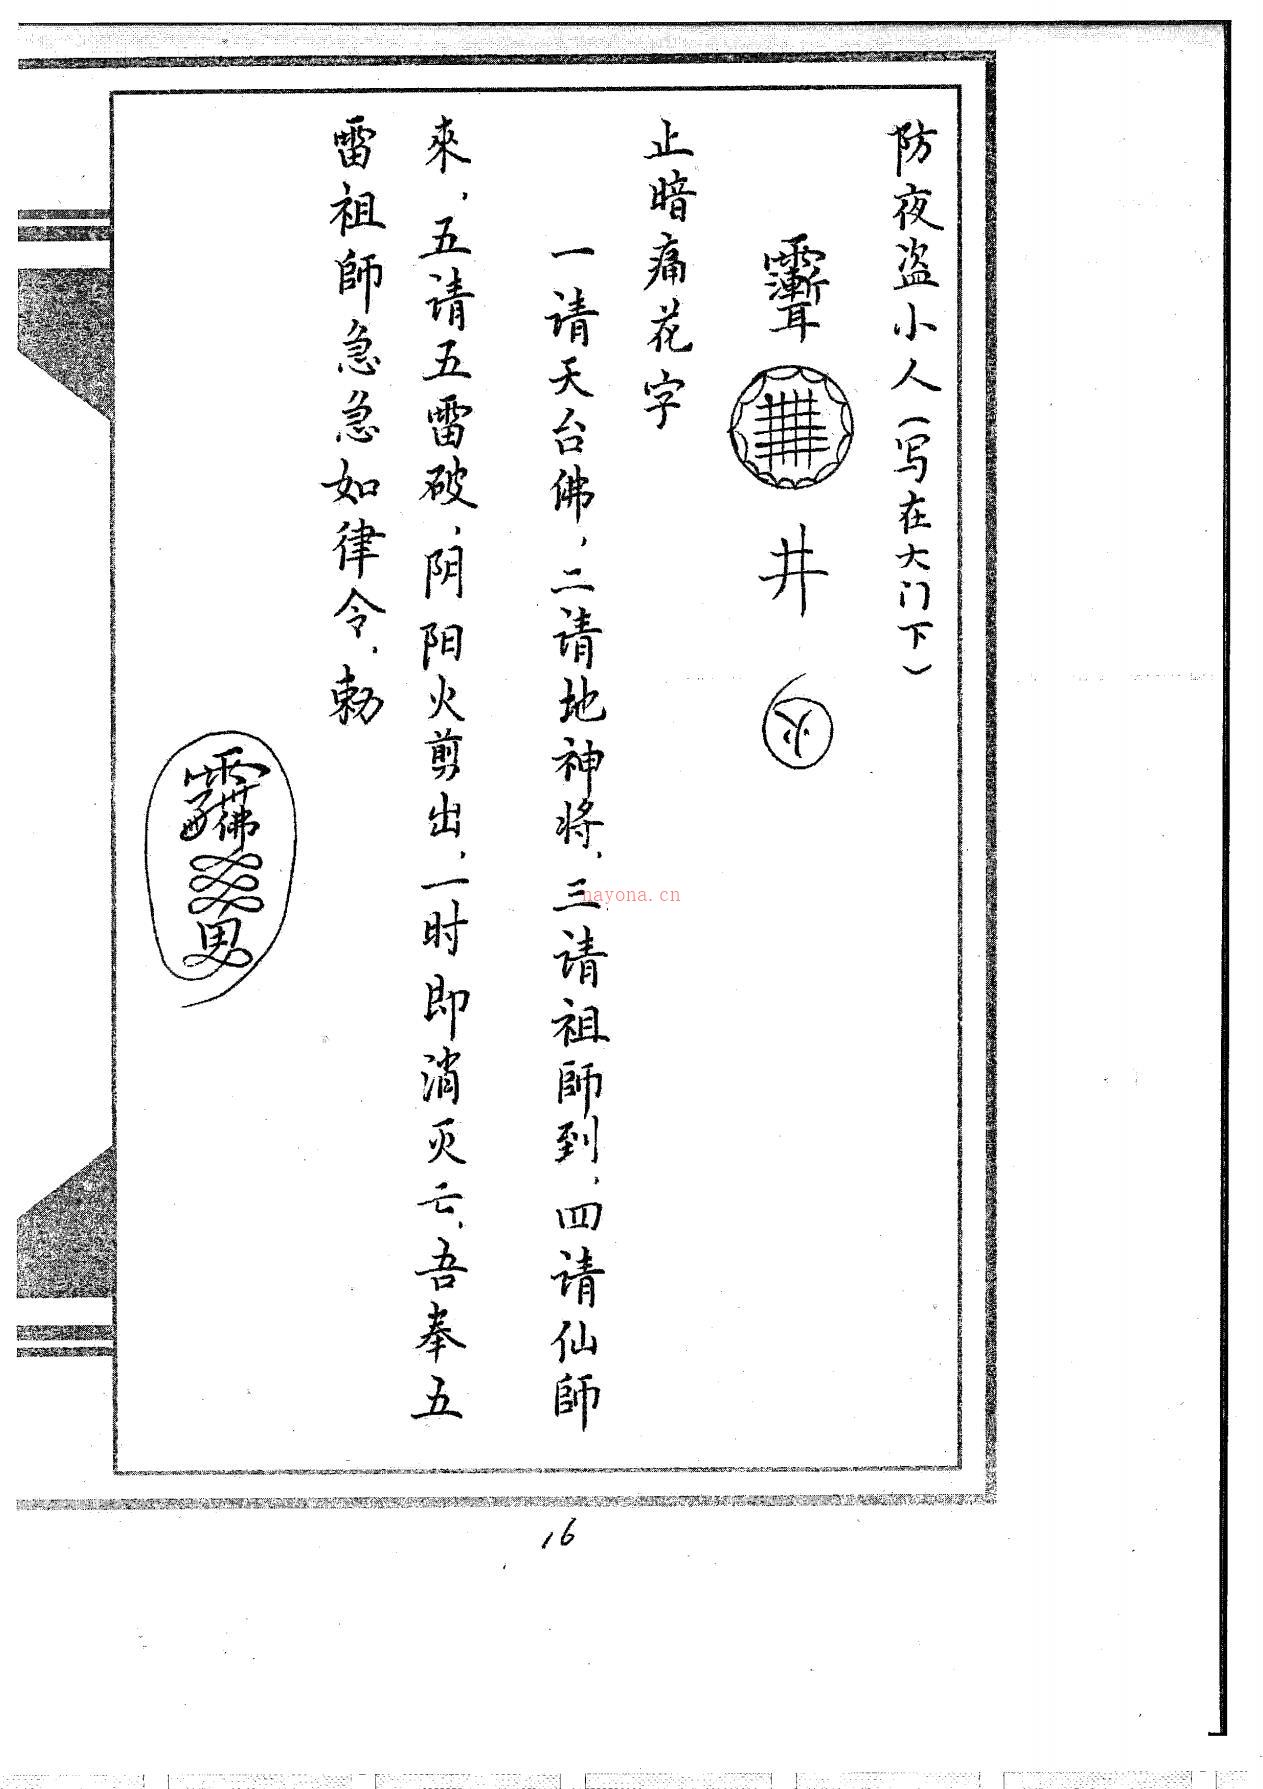 防夜盗小人（写在大门下）
井
火
止暗痛花字
一请天台佛，二请地神将，三请祖師到，四请仙師
來，五请五雷破，阴阳火剪出，一时即消灭亡，吾奉五
雷祖師急急如律令，勅
男
nayona.cn
16